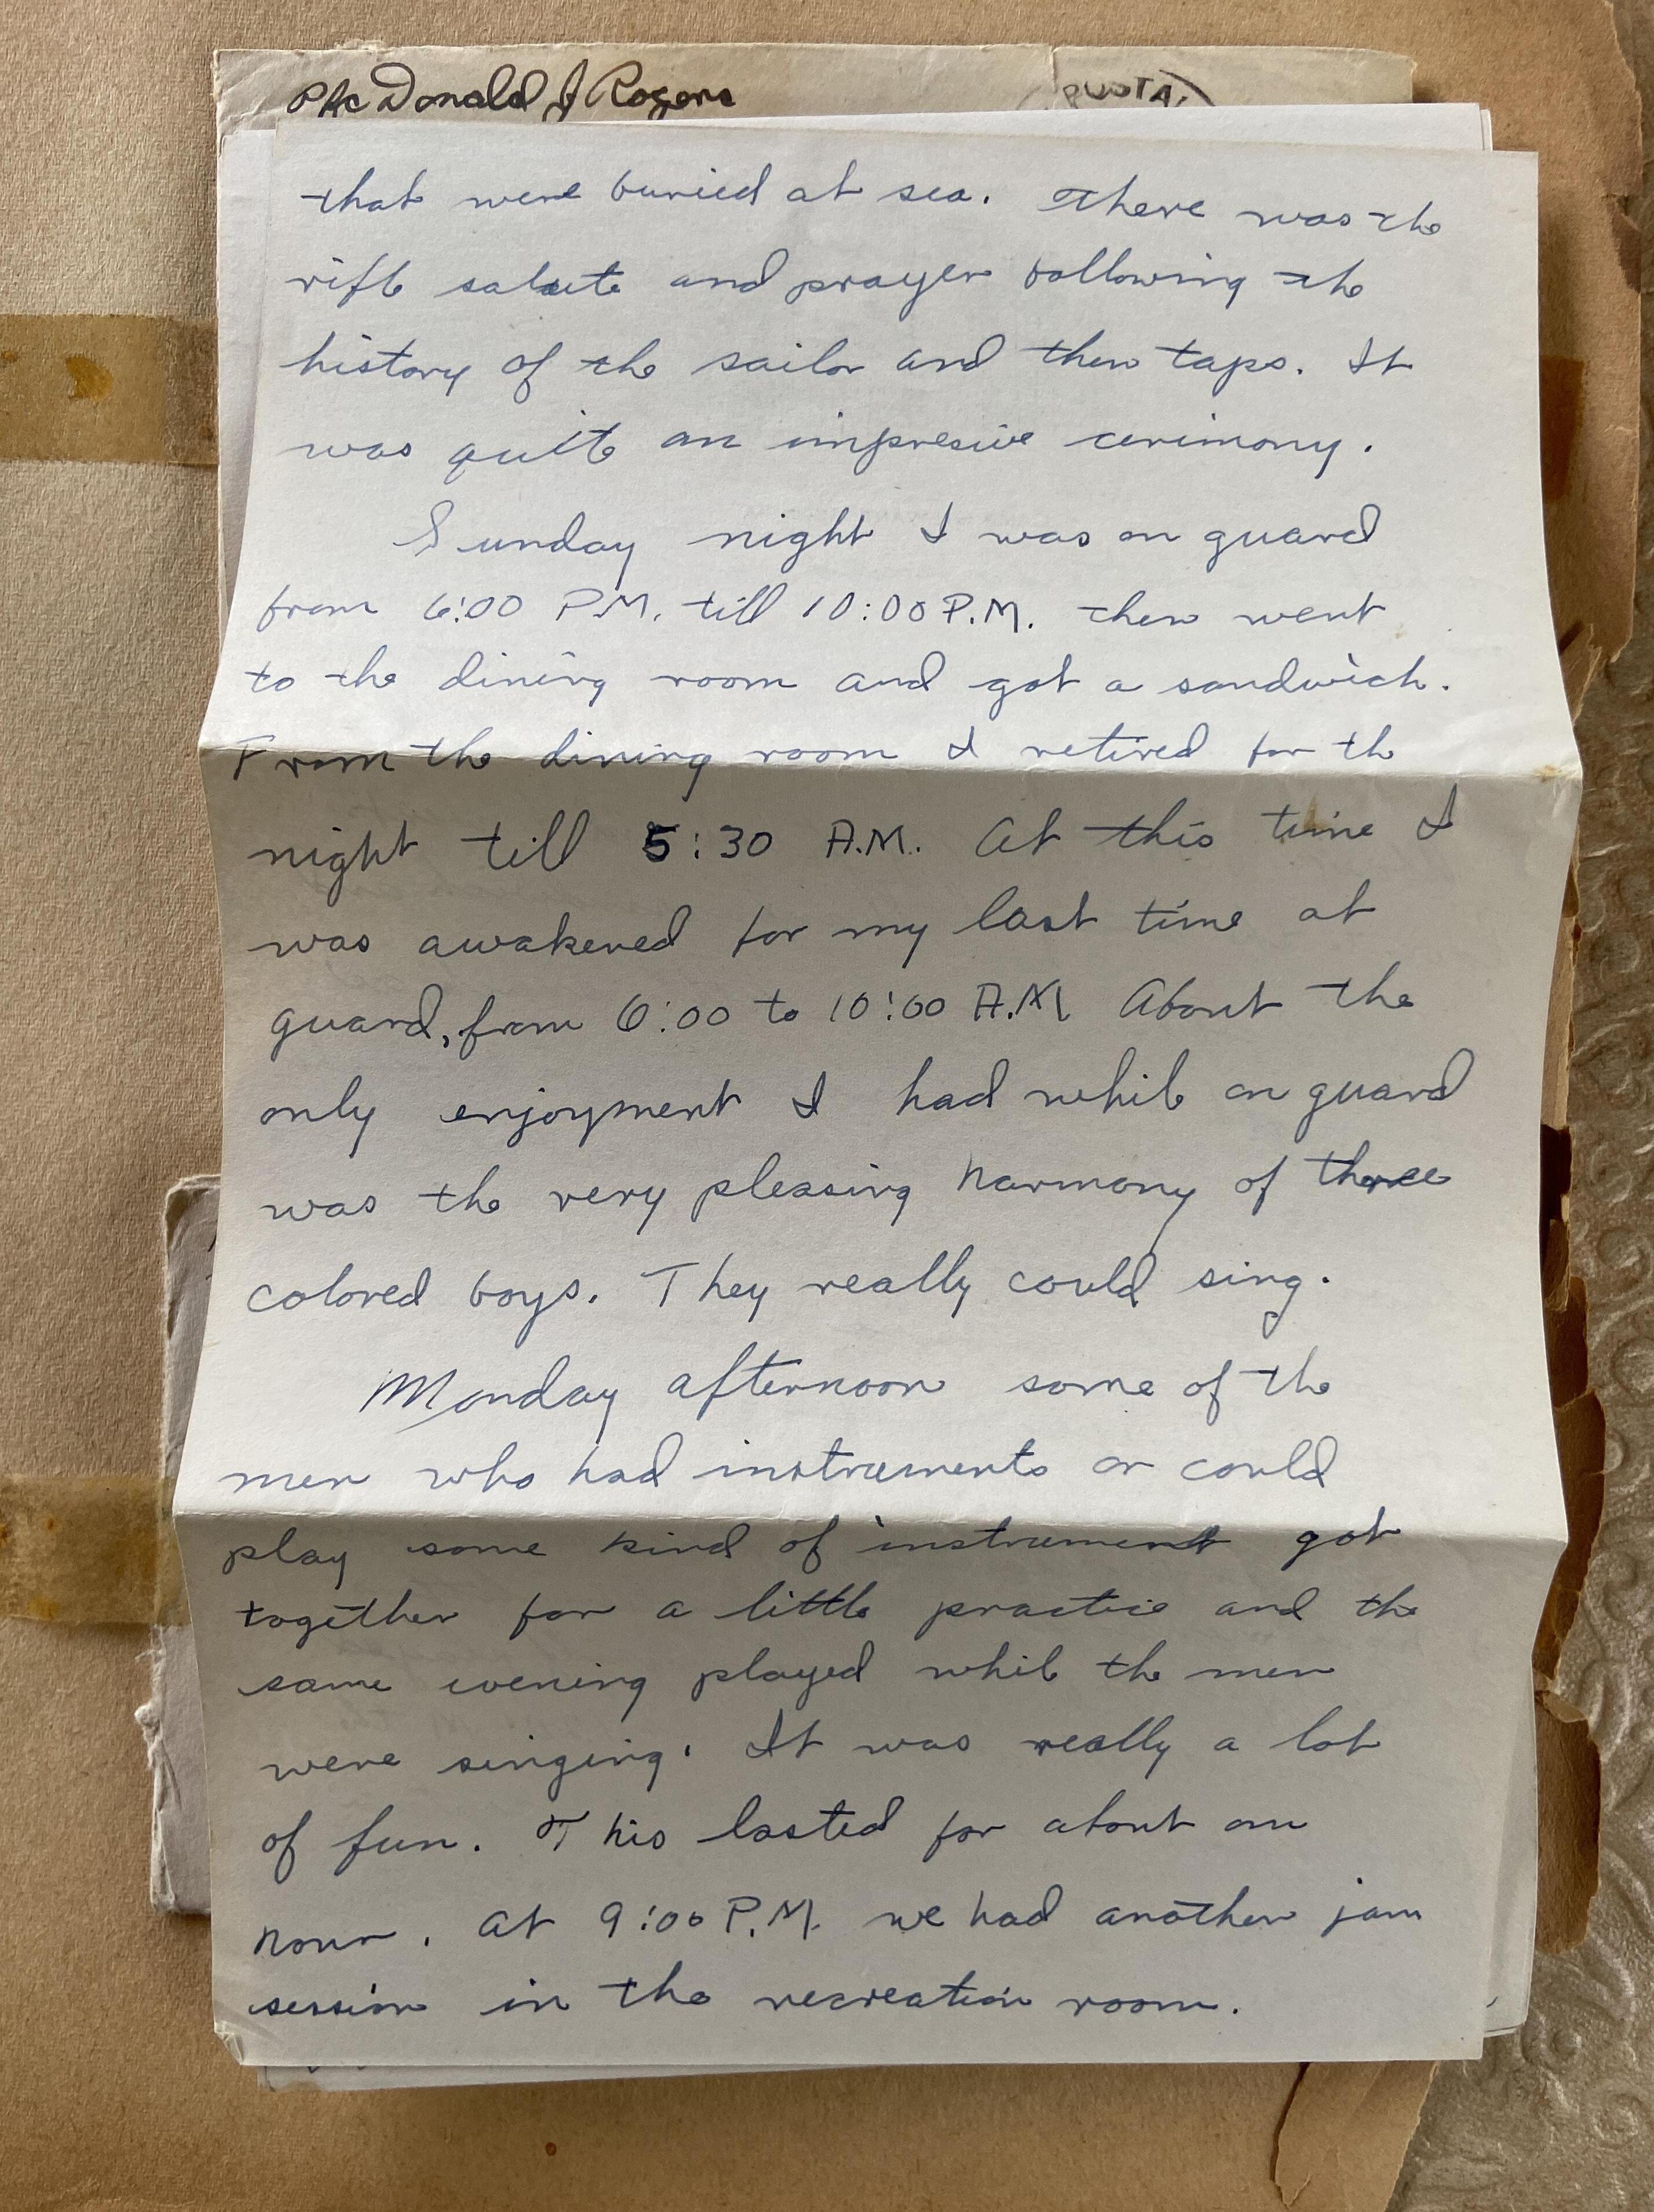 Pfc Donald J Rogers
POSTAL
that were buried at sea. There was the
rifle salute and prayer following the
history of the sailor and then taps. It
was quite an impresive cerimony.
Sunday night I was on guard
from 6:00 P.M. till 10:00 P.M. then went
to the dining room and got a sandwich.
From the dining room I retired for the
night till 5:30 A.M. At this time I
was awakened for my last time at
guard, from 6:00 to 10:00 A.M. About the
only enjoyment I had while on guard
was the very pleasing harmony of three
colored boys. They really could sing.
Monday afternoon some of the
men who had instruments or could
play some kind of instrument got
together for a little practice and the
same evening played while the men
were singing. It was really a lot
of fun. This lasted for about an
hour. At 9:00 P.M. we had another jam
session in the recreation room.